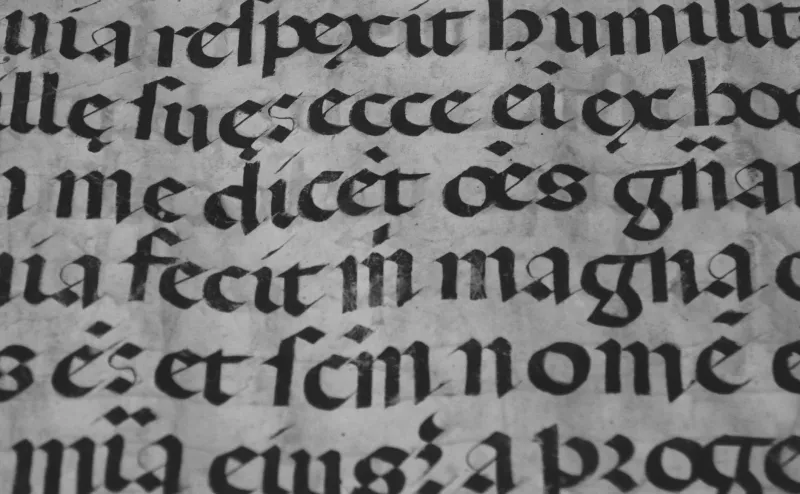 nia respexit humilit
illę suę: ecce ei ex hoc
me dicēt oēs gña
nia fecit m̄ magna
s ē: et scm̄ nomē e
mia eius: a proge